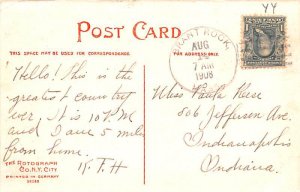 YY
POST CARD
THIS SPACE MAY BE USED FOR CORRESPONDENCE.
FOR ADDRESS ONLY.
BRANT ROCK,
AUG
7 AM
1908
Hello! This is the
greatest country
ever, it is 10 P.M
and I am 5 miles
from home.
K.F.H
Miss Paula
506 Jefferson Ave
Indianapolis
Indiana.
THE ROTOGRAPH
CO. N.Y. CITY
PRINTED IN GERMANY